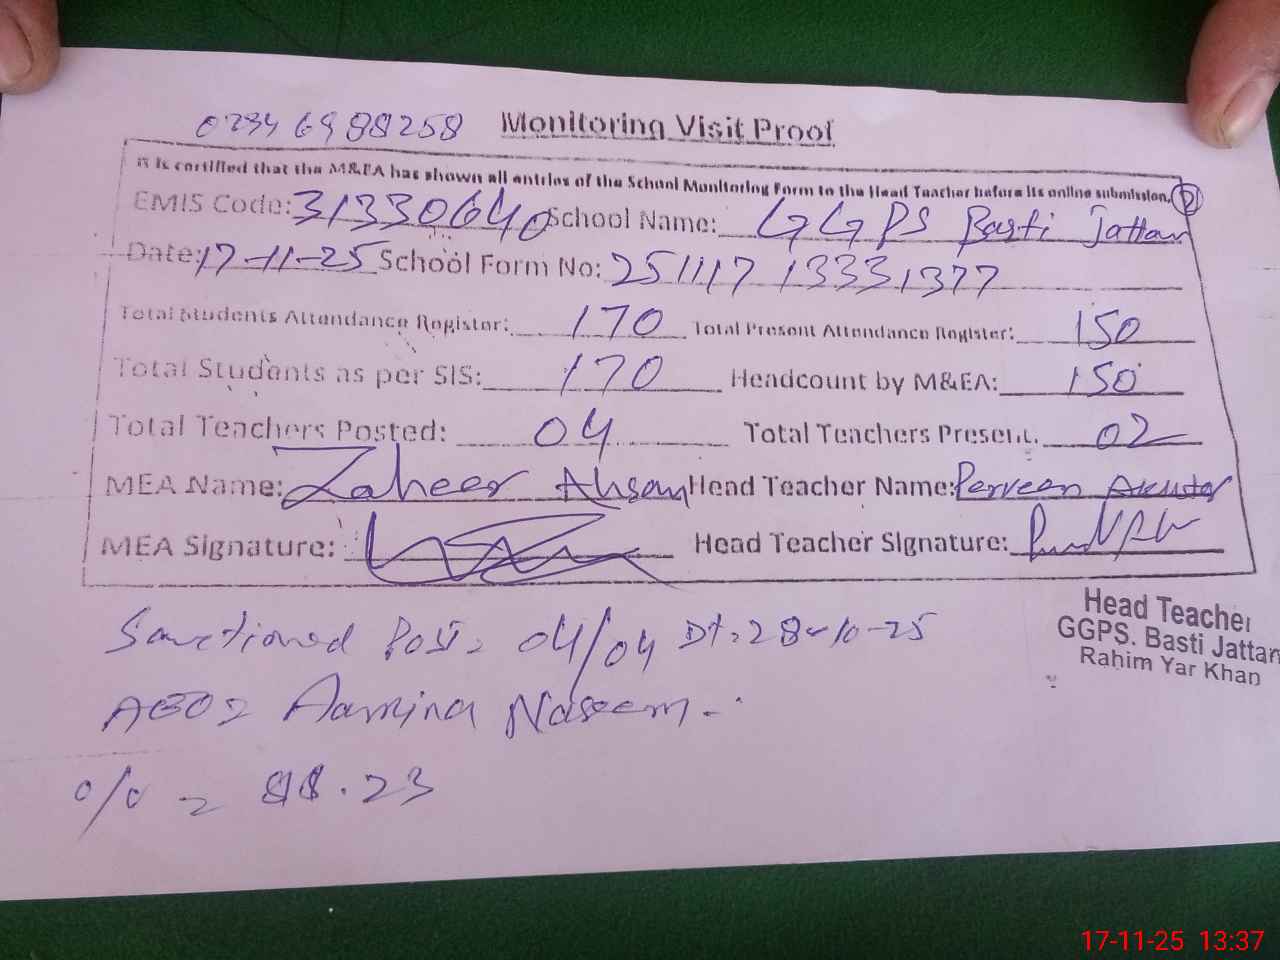 0234 6988258 Monitoring Visit Proof
It is certified that the M&EA has shown all entries of the School Monitoring Form to the Head Teacher before its online submission.
EMIS Code: 31330640 School Name: GGPS Basti Jattan
Date: 17-11-25 School Form No: 251117 13331377
Total Students Attendance Register: 170 Total Present Attendance Register: 150
Total Students as per SIS: 170 Headcount by M&EA: 150
Total Teachers Posted: 04 Total Teachers Present. 02
MEA Name: Zaheer Ahsan Head Teacher Name: Perveen Akhtar
MEA Signature: Head Teacher Signature:
Head Teacher
GGPS. Basti Jattan
Rahim Yar Khan
Sanctioned Post = 04/04 Dt = 28-10-25
AEO = Aamina Naseem -
% = 88.23
17-11-25 13:37